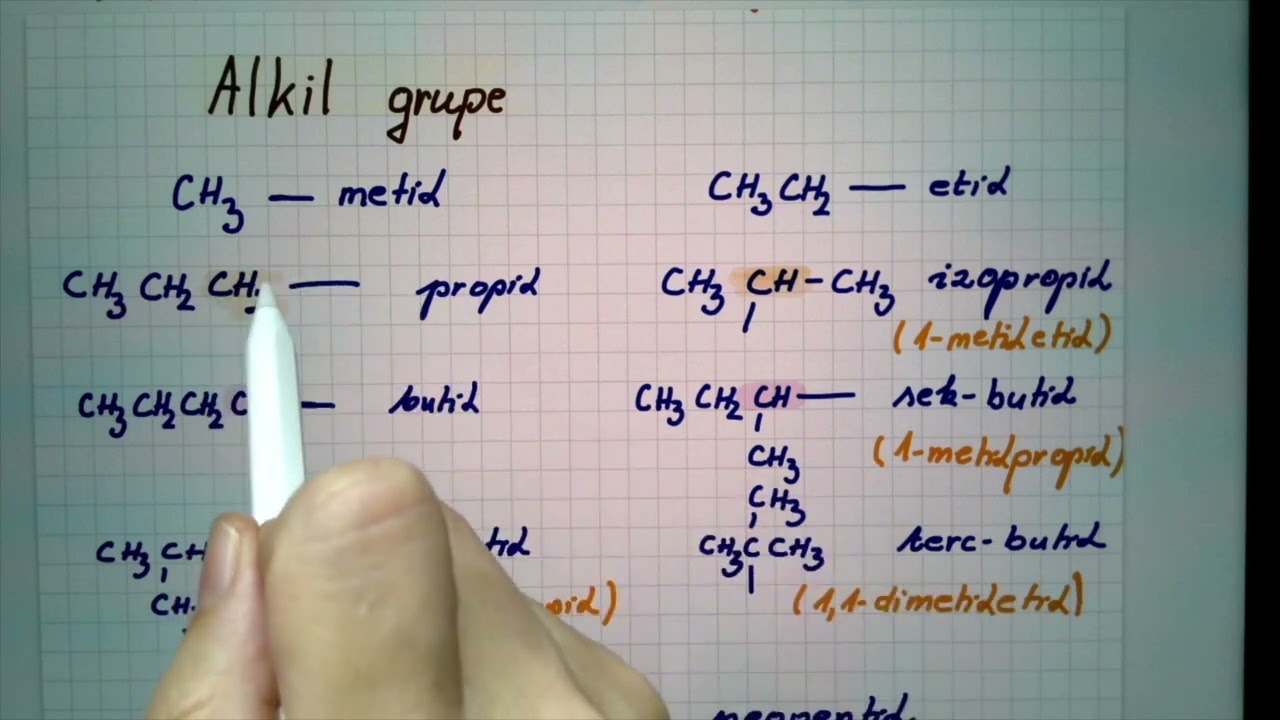 Alkil grupe
CH3 — metil
CH3CH2 — etil
CH3 CH2 CH — propil
CH3 CH-CH3 izopropil
(1-metiletil)
CH3CH2CH2 C — butil
CH3 CH2 CH — sek-butil
CH3
(1-metilpropil)
CH3 CH
CH
CH3
CH3C CH3 terc-butil
(1,1-dimetiletil)
neopentil